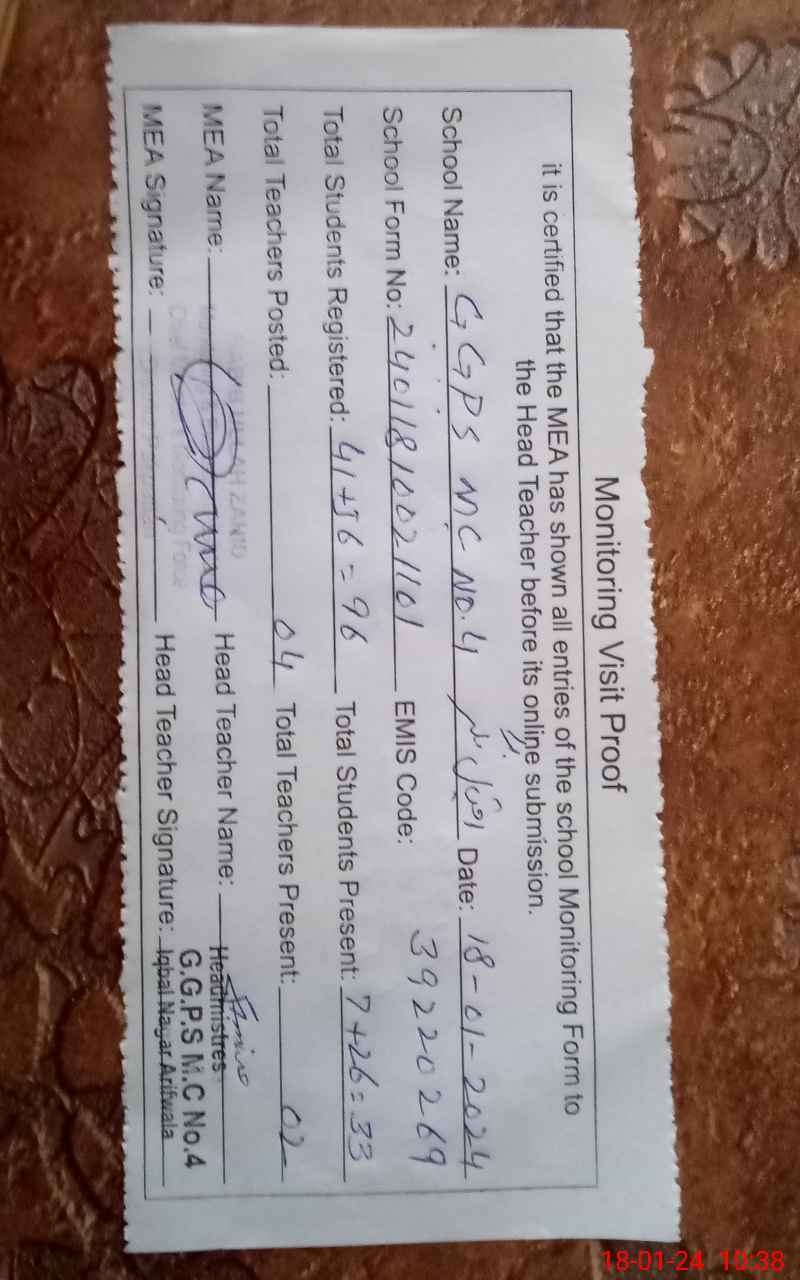 Monitoring Visit Proof
it is certified that the MEA has shown all entries of the school Monitoring Form to
the Head Teacher before its online submission.
School Name: G.G.P.S M.C NO.4 Date: 18-01-2024
School Form No: 24011810021101 EMIS Code: 39220269
Total Students Registered: 41+56=96 Total Students Present: 7+26=33
Total Teachers Posted: 04 Total Teachers Present: 02
MEA Name: Head Teacher Name:
Headmistres
MEA Signature: Head Teacher Signature:
G.G.P.S M.C No.4
Iqbal Nagar Arifwala
18-01-24 10:38